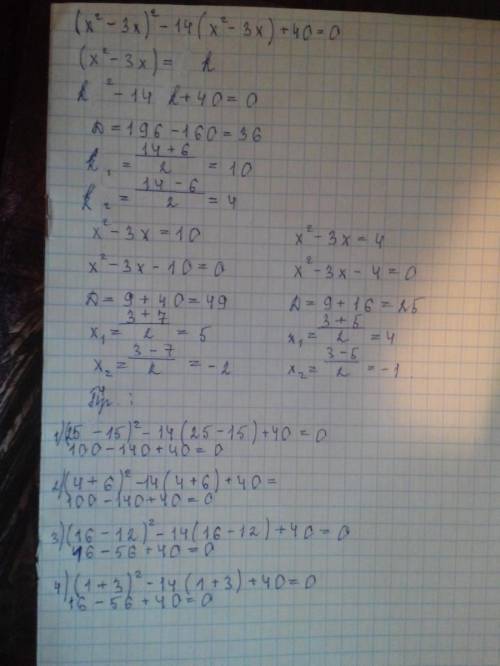 (x² - 3x)² - 14(x² - 3x) + 40 = 0
(x² - 3x) = k
k² - 14 k + 40 = 0
D = 196 - 160 = 36
k₁ = (14 + 6)/2 = 10
k₂ = (14 - 6)/2 = 4
x² - 3x = 10    x² - 3x = 4
x² - 3x - 10 = 0    x² - 3x - 4 = 0
D = 9 + 40 = 49    D = 9 + 16 = 25
x₁ = (3 + 7)/2 = 5    x₁ = (3 + 5)/2 = 4
x₂ = (3 - 7)/2 = -2    x₂ = (3 - 5)/2 = -1
Пр :
1) (25 - 15)² - 14(25 - 15) + 40 = 0
100 - 140 + 40 = 0
2) (4 + 6)² - 14(4 + 6) + 40 =
100 - 140 + 40 = 0
3) (16 - 12)² - 14(16 - 12) + 40 = 0
16 - 56 + 40 = 0
4) (1 + 3)² - 14(1 + 3) + 40 = 0
16 - 56 + 40 = 0